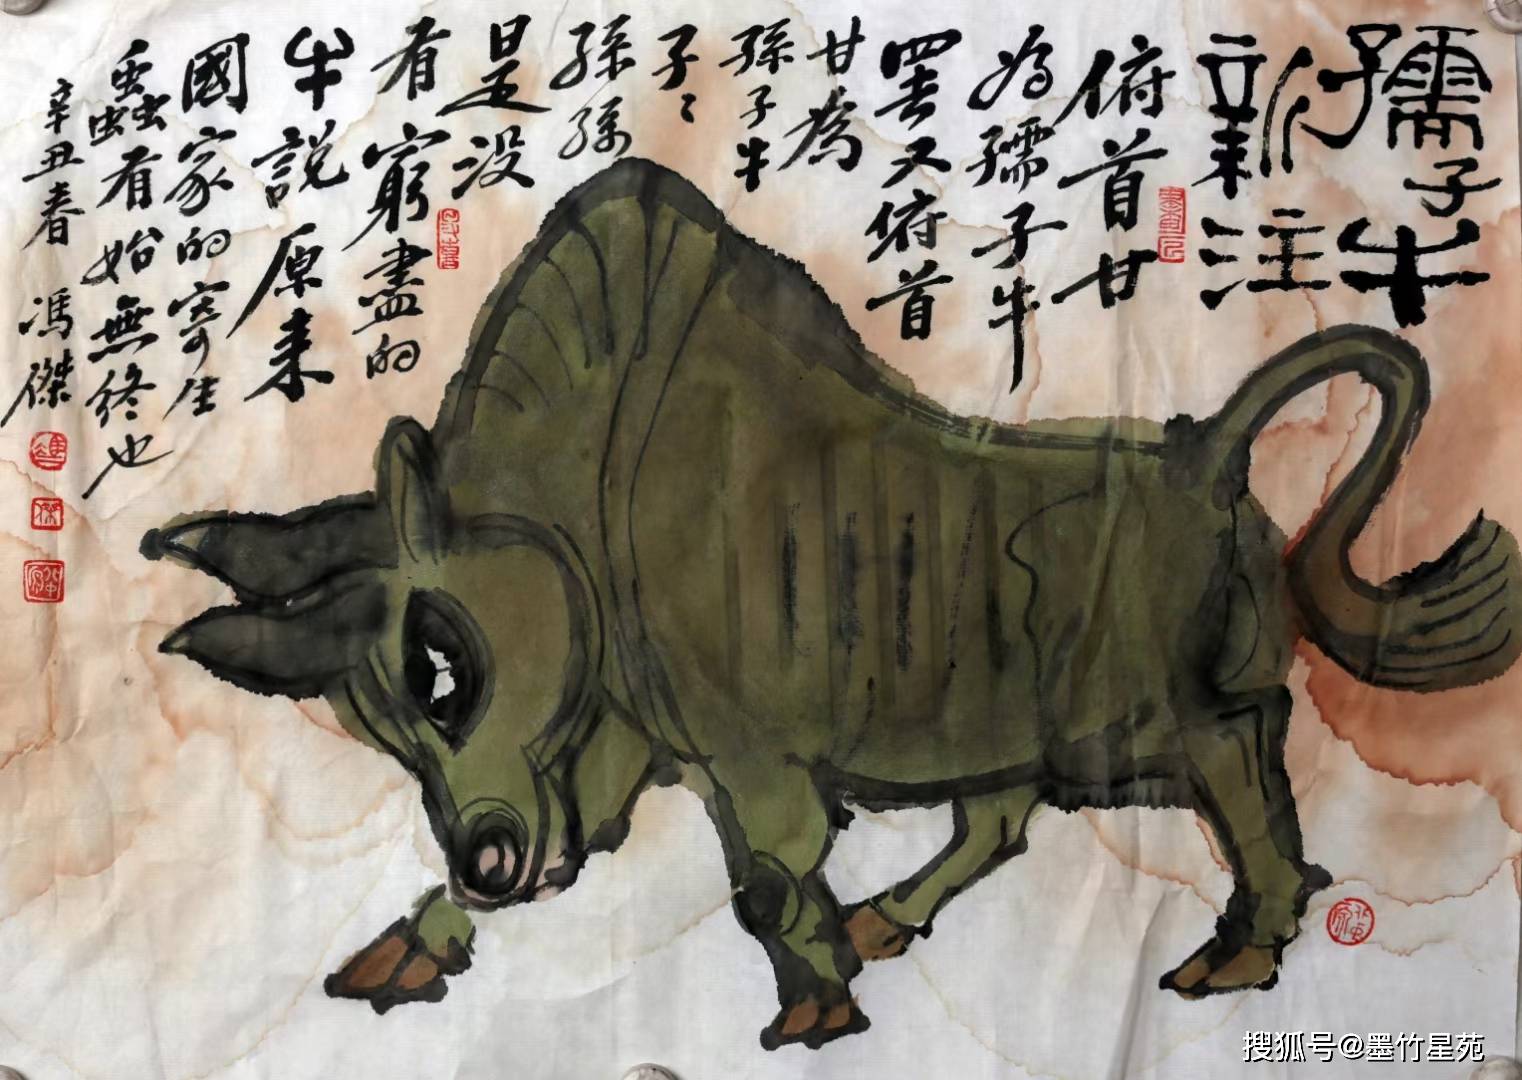 孺子牛
新注
俯首甘
為孺子牛
罢又俯首
甘為
孫子牛
子〻
孫孫
是没
有窮盡的
牛說原来
國家的寄生
蟲有始無終也
辛丑春 馮傑
搜狐号@墨竹星苑